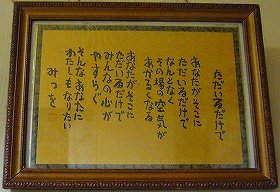 ただいるだけで
あなたがそこに
ただいるだけで
なんとなく
その場の空気が
あかるくなる
あなたがそこに
ただいるだけで
みんなの心が
やすらぐ
そんなあなたに
わたしもなりたい
みつを